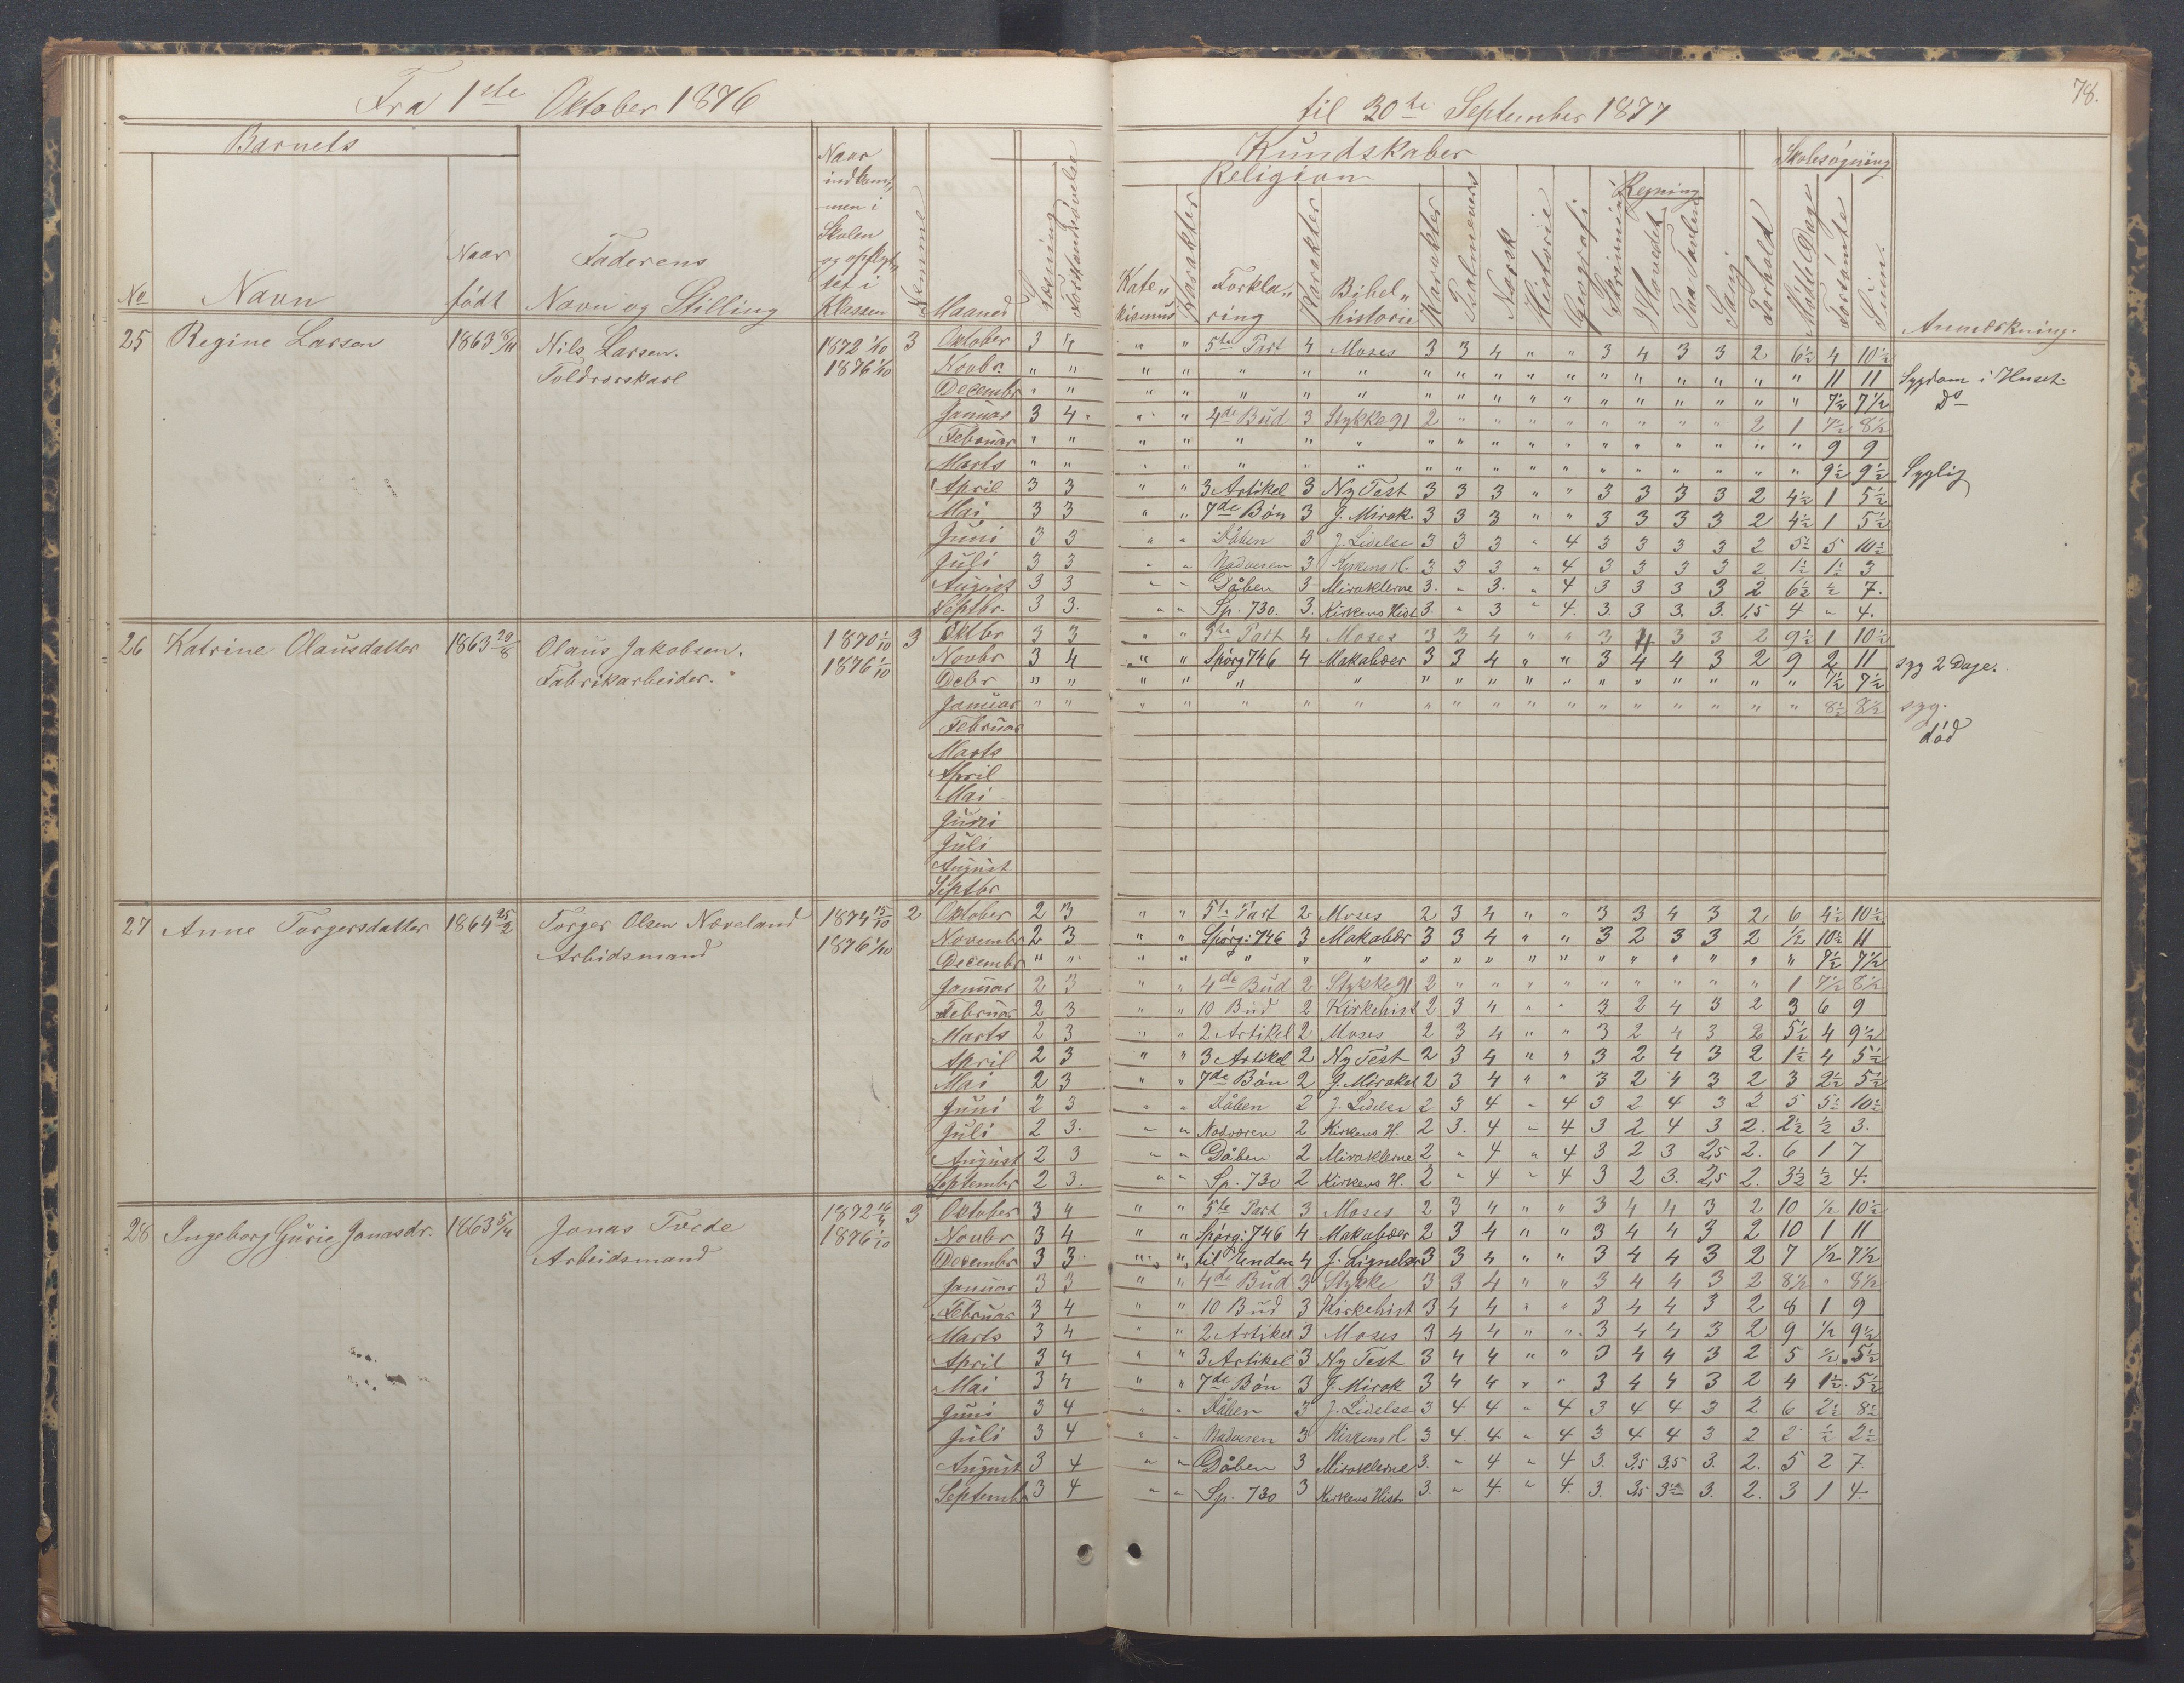 Fra 1ste Oktober 1876
til 30te September 1877
78.
Barnets
Kundskaber
Skolesøgning
Religion
Regning
No Navn
Naar født
Faderens Navn og Stilling
Naar indkommen i Skolen og opflyttet i Klassen
Nemme
Maaned
Læsning
Forstandsøvelse
Kate„ kismus
Karakter
Forkla„ ring
Karakter
Bibel„ historie
Karakter
Psalmevers
Norsk
Historie
Geografi
Skrivning
I Hovedet
Paa Tavlen
Sang
Forhold
Mødte Dage
Forsømte
Sum.
Anmærkning.
25 Regine Larsen 1863 Nils Larsen. 1872 1/10 3 Oktober 3 4 " " 5te Part 4 Moses 3 3 4 " " 3 4 3 3 2 6½ 4 10½
Toldrorskarl 1876 1/10 Novbr. " " " " " " " " " " " " " " " " " " " 11 11 Sygdom i Huset.
Decembr " " " " " " " " " " " " " " " " " " " 7½ 7½ Do
Januar 3 4 " " 4de Bud 3 Stykke 91 2 " " " " " " " " 2 1 7½ 8½
Februar " " " " " " " " " " " " " " " " " " " 9 9
Marts " " " " " " " " " " " " " " " " " " " 9½ 9½ Syglig
April 3 3 " " 3 Artikel 3 Ny Test 3 3 3 " " 3 3 3 3 2 4½ 1 5½
Mai 3 3 " " 7de Bøn 3 J. Mirak. 3 3 3 " " 3 3 3 3 2 4½ 1 5½
Juni 3 3 " " Dåben 3 J. Lidelse 3 3 3 " 4 3 3 3 3 2 5½ 5 10½
Juli 3 3 " " Nadveren 3 Kirkens H. 3 3 3 " 4 3 3 3 3 2 1½ 1½ 3
August 3 3 " " Dåben 3 Miraklerne 3. " 3. " 4 3 3 3 3 2 6½ ½ 7.
Septbr. 3 3. " " Sp. 730. 3. Kirkens Hist 3. " 3 " 4. 3. 3 3. 3. 1,5 4 " 4.
26 Katrine Olausdatter 1863 29/8 Olaus Jakobsen. 1870 1/10 3 Oktbr 3 3 " " 5te Part 4 Moses 3 3 4 " " 3 4 3 3 2 9½ 1 10½
Fabrikarbeider. 1876 1/10 Novbr 3 4 " " Spørg 746 4 Makabæer 3 3 4 " " 3 4 4 3 2 9 2 11 syg 2 Dage.
Decbr " " " " " " " " " " " " " " " " " " " 7½ 7½
Januar " " " " " " " " " " " " " " " " " " " 8½ 8½ syg.
Februar død
Marts
April
Mai
Juni
Juli
August
Septbr
27 Anne Torgersdatter 1864 25/2 Torger Olsen Næveland 1874 15/10 2 Oktober 2 3 " " 5te Part 2 Moses 2 3 4 " " 3 3 4 3 2 6 4½ 10½
Arbidsmand 1876 1/10 Novembr 2 3 " " Spørg: 746 3 Makabær 3 3 4 " " 3 2 3 3 2 ½ 10½ 11
Decembr " " " " " " " " " " " " " " " " " " " 7½ 7½
Januar 2 3 " " 4de Bud 2 Stykke 91 2 " " " " " " " " " 1 7½ 8½
Februar 2 3 " " 10 Bud 2 Kirkehist 2 3 4 " " 3 2 4 3 2 3 6 9
Marts 2 3 " " 2 Artikel 2 Moses 2 3 4 " " 3 2 4 3 2 5½ 4 9½
April 2 3 " " 3 Artikel 2 Ny Test 2 3 4 " " 3 2 4 3 2 1½ 4 5½
Mai 2 3 " " 7de Bøn 2 J. Mirakel 2 3 4 " " 3 2 4 3 2 3 2½ 5½
Juni 2 3 " " Dåben 2 J. Lidelse 2 3 4 " 4 3 2 4 3 2 5 5½ 10½
Juli 2 3. " " Nadveren 2 Kirkens H. 2 3. 4 " 4 3 2 4 3 2. 2½ ½ 3.
August 2 3 " " Dåben 2 Miraklerne 2 " 4 " 4 3 2 3 2,5 2. 6 1 7
Septembr 2 3. " " Sp. 730 2 Kirkens H. 2 " 4 " 4 3 2 3. 2,5 2. 3½ ½ 4.
28 Ingeborg Gurie Jonasdr. 1863 5/4 Jonas Tvede 1872 16/4 3 Oktober 3 4 " " 5te Part 3 Moses 2 3 4 " " 3 4 4 3 2 10 ½ 10½
Arbeidsmand 1876 1/10 Novbr 3 4 " " Spørg: 746 4 Makabæer 2 3 4 " " 3 4 4 3 2 10 1 11
Decembr 3 3 " " til Enden 4 J. Lignelser 3 3 4 " " 3 4 4 3 2 7 ½ 7½
Januar 3 3 " " 4de Bud 3 Stykke 3 3 4 " " 3 4 4 3 2 8½ " 8½
Februar 3 4 " " 10 Bud 3 Kirkehist 3 4 4 " " 3 4 4 3 2 8 1 9
Marts 3 4 " " 2 Artikel 3 Moses 3 4 4 " " 3 4 4 3 2 9 ½ 9½
April 3 4 " " 3 Artikel 3 Ny Test 3 4 4 " " 3 4 4 3 2 5 ½ 5½
Mai 3 4 " " 7de Bøn 3 J. Mirak 3 4 4 " " 3 4 4 3 2 4 1½ 5½
Juni 3 4 " " Dåben 3 J. Lidelse 3 4 4 " 4 3 4 4 3 2 6 2½ 8½
Juli 3 4 " " Nadveren 3 Kirkens H 3 4. 4. " 4 3 4 4 3 2 2 ½ 2½
August 3 4 " " Dåben 3 Miraklerne 3. " 4 " 4 3. 3,5 3,5 3. 2. 5 2 7.
Septembr 3 4 " " Sp. 730 3 Kirkens Hist 3. " 4. " 4. 3. 3,5 3. 2. 3 1 4.